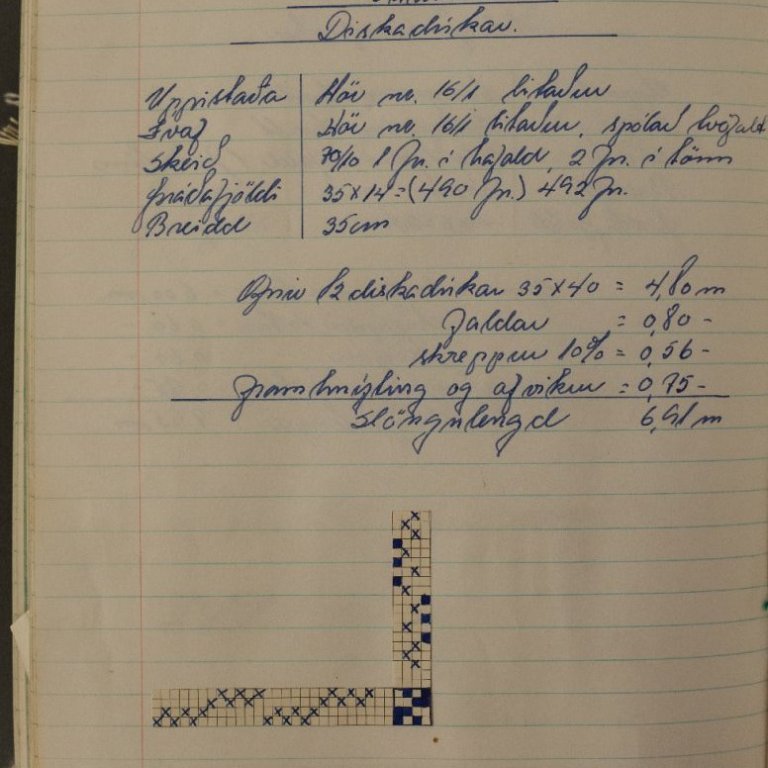 Diskadúkar.
Uppistaða Hör nr. 16/1 litaður
Ívaf Hör nr. 16/1 litaður, spólað tvöfalt
Skeið 70/10 1 þr. í hafald, 2 þr. í tönn
Þráðafjöldi 35x14=(490 þr.) 492 þr.
Breidd 35cm
Ofnir 12 diskadúkar 35x40 = 4,80 m
Faldar = 0,80 -
skreppur 10% = 0,56 -
framhnýting og afvikur = 0,75 -
Slöngulengd 6,91 m